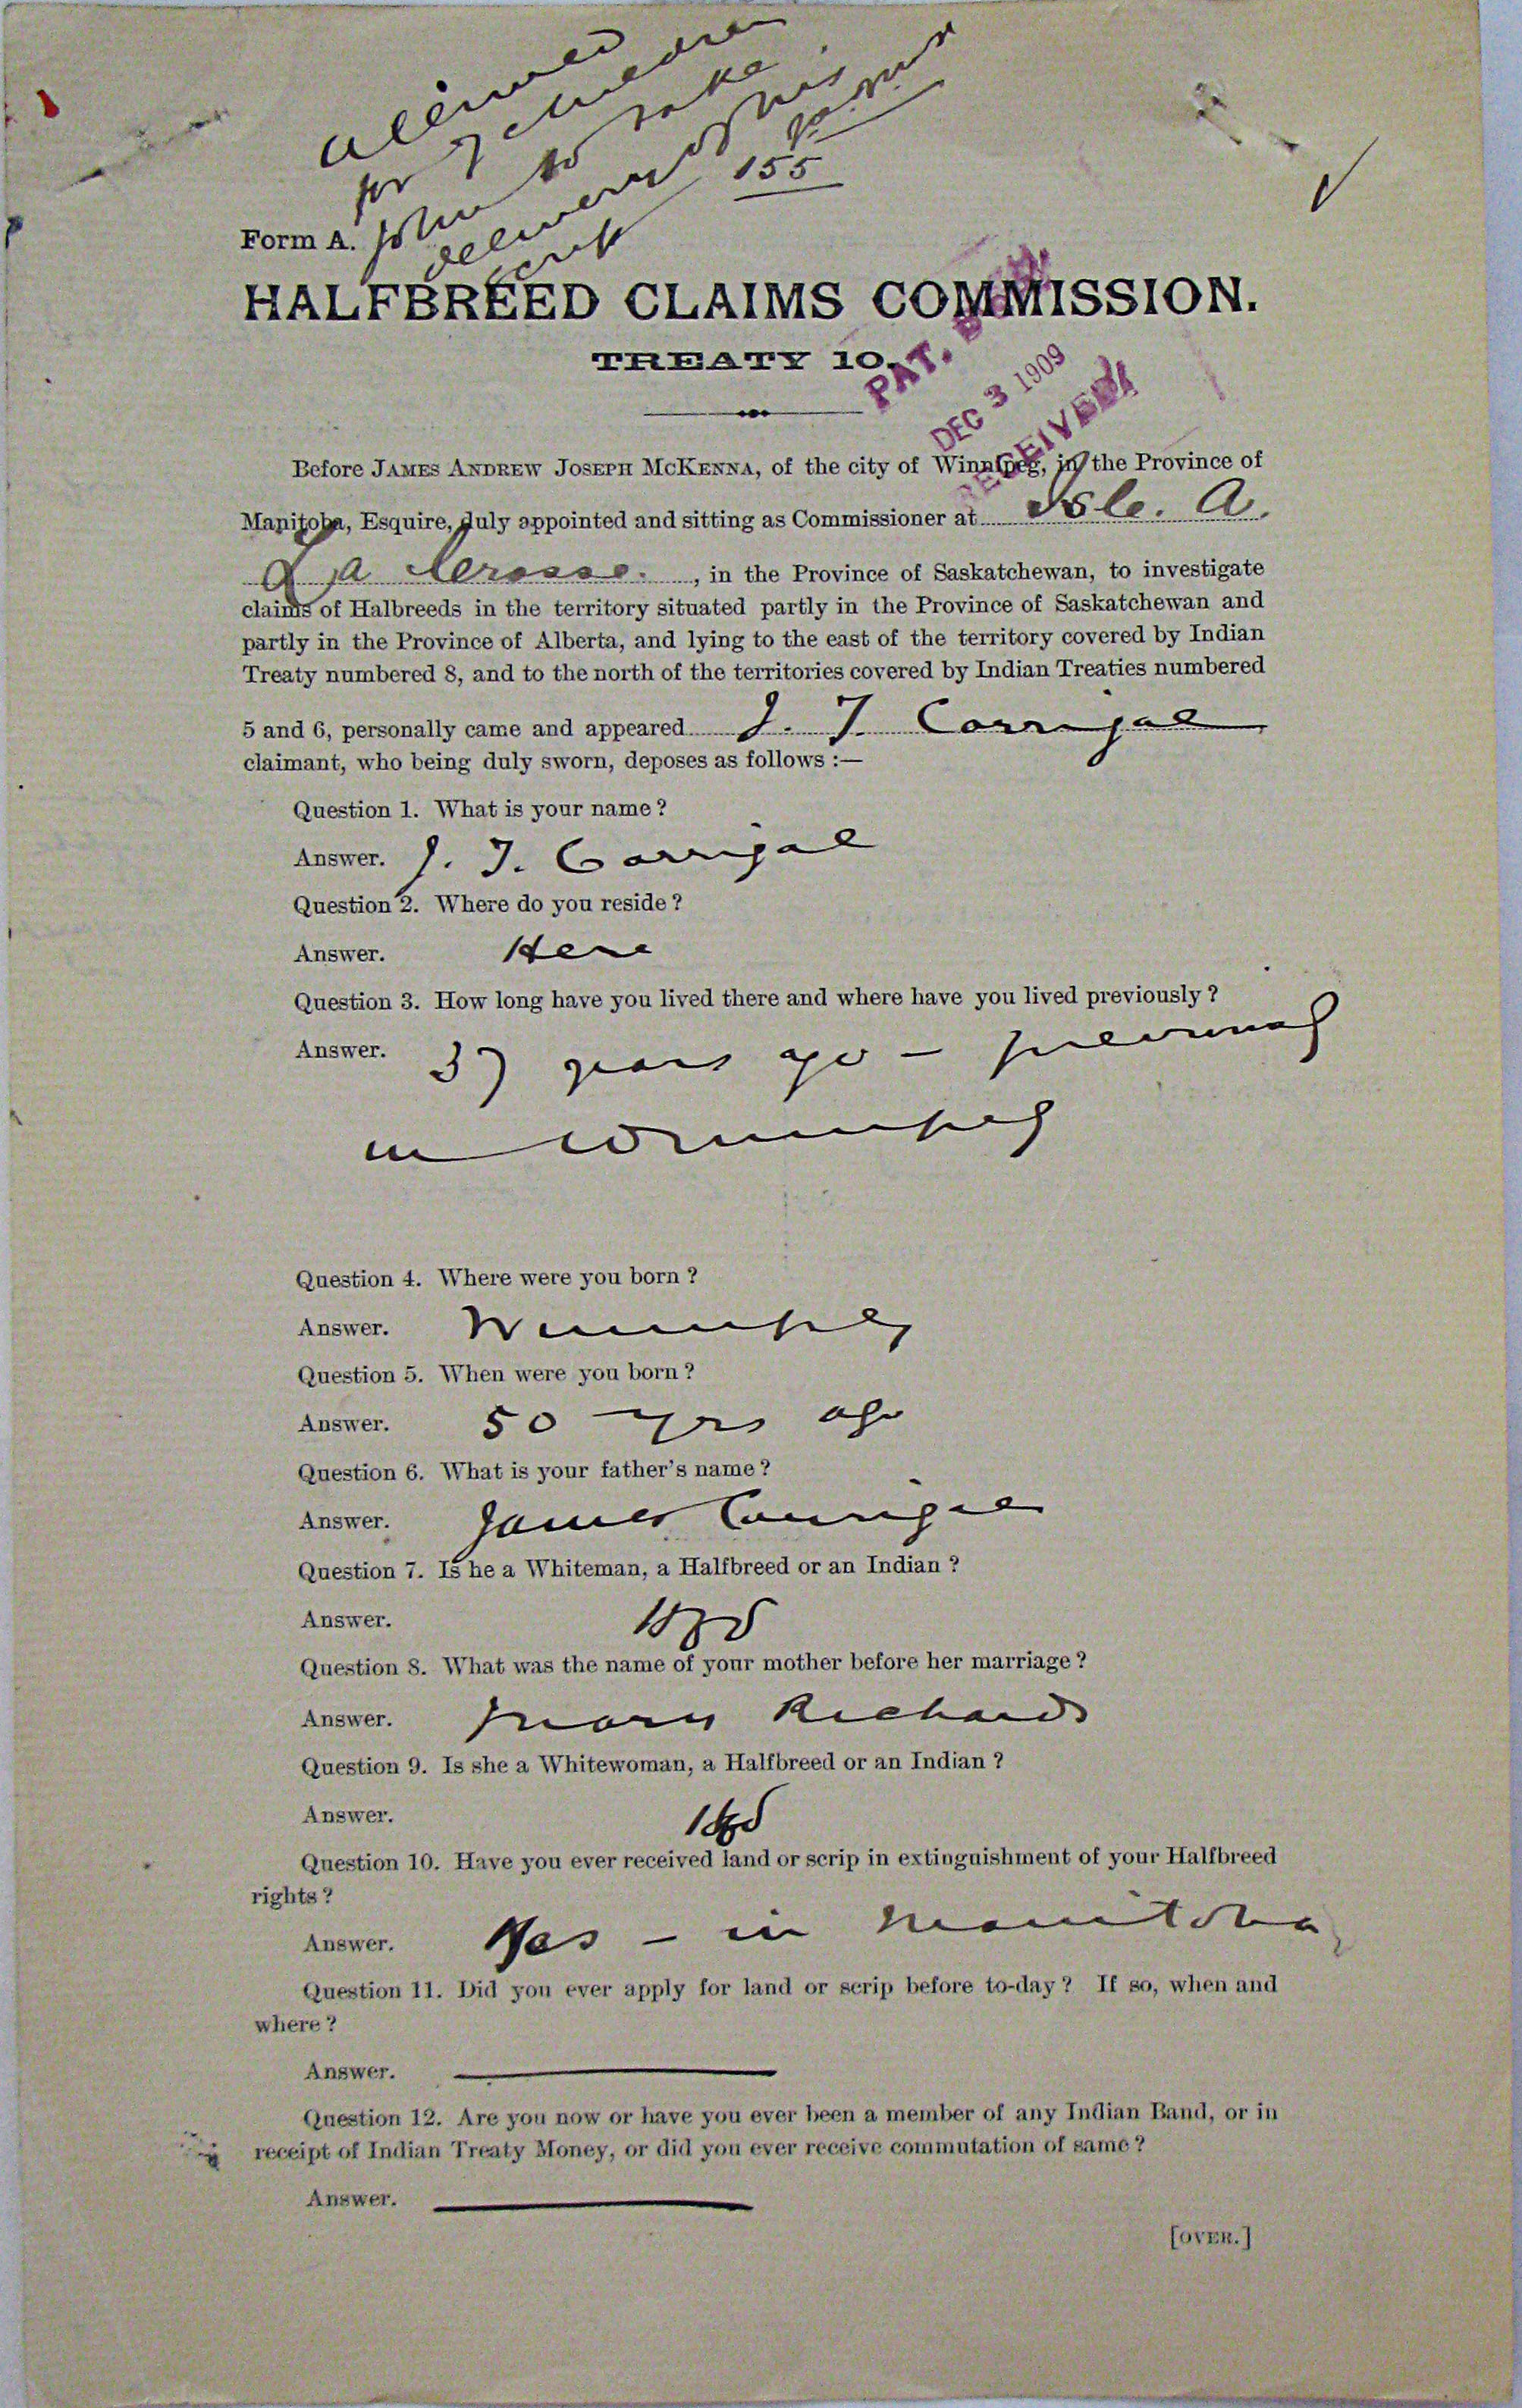 allowed
for Children
John to take
delivery of his
scrip
155
Form A.
HALFBREED CLAIMS COMMISSION.
TREATY 10.
PAT.
DEC 3 1909
RECEIVED
Before JAMES ANDREW JOSEPH McKENNA, of the city of Winnipeg, in the Province of
Manitoba, Esquire, duly appointed and sitting as Commissioner at Isle. A.
La Crosse. , in the Province of Saskatchewan, to investigate
claims of Halbreeds in the territory situated partly in the Province of Saskatchewan and
partly in the Province of Alberta, and lying to the east of the territory covered by Indian
Treaty numbered 8, and to the north of the territories covered by Indian Treaties numbered
5 and 6, personally came and appeared J. T. Corrigal
claimant, who being duly sworn, deposes as follows :—
Question 1. What is your name ?
Answer. J. T. Corrigal
Question 2. Where do you reside ?
Answer. Here
Question 3. How long have you lived there and where have you lived previously ?
Answer. 37 years ago — previously
in Winnipeg
Question 4. Where were you born ?
Answer. Winnipeg
Question 5. When were you born ?
Answer. 50 yrs ago
Question 6. What is your father's name ?
Answer. James Corrigal
Question 7. Is he a Whiteman, a Halfbreed or an Indian ?
Answer. HB
Question 8. What was the name of your mother before her marriage ?
Answer. Mary Richards
Question 9. Is she a Whitewoman, a Halfbreed or an Indian ?
Answer. HB
Question 10. Have you ever received land or scrip in extinguishment of your Halfbreed
rights ?
Answer. Yes — in Manitoba
Question 11. Did you ever apply for land or scrip before to-day ? If so, when and
where ?
Answer.
Question 12. Are you now or have you ever been a member of any Indian Band, or in
receipt of Indian Treaty Money, or did you ever receive commutation of same ?
Answer.
[OVER.]